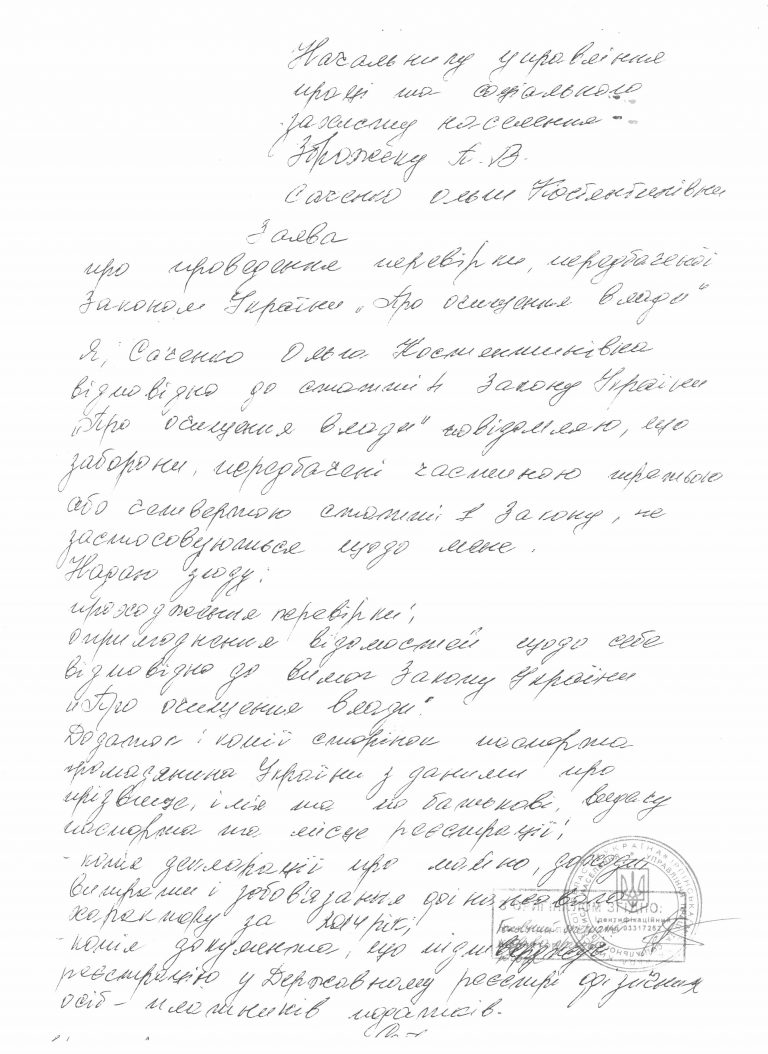 Начальнику управління
праці та соціального
захисту населення
Зброжеку П. В.
Саченко Ольги Костянтинівни
Заява
про проведення перевірки, передбаченої
Законом України „Про очищення влади"
Я, Саченко Ольга Костянтинівна
відповідно до статті 4 Закону України
„Про очищення влади" повідомляю, що
заборони, передбачені частиною третьою
або четвертою статті 1 Закону, не
застосовуються щодо мене.
Надаю згоду:
проходження перевірки;
оприлюднення відомостей щодо себе
відповідно до вимог Закону України
„Про очищення влади".
Додаток: копії сторінок паспорта
громадянина України з даними про
прізвище, ім'я та по батькові, видачу
паспорта та місце реєстрації;
- копія декларації про майно, доходи,
витрати і зобов'язання фінансового
характеру за 2014 рік;
- копія документа, що підтверджує
реєстрацію у Державному реєстрі фізичних
осіб - платників податків.
З ОРИГІНАЛОМ ЗГІДНО:
УКРАЇНА
ідентифікаційний
03317252